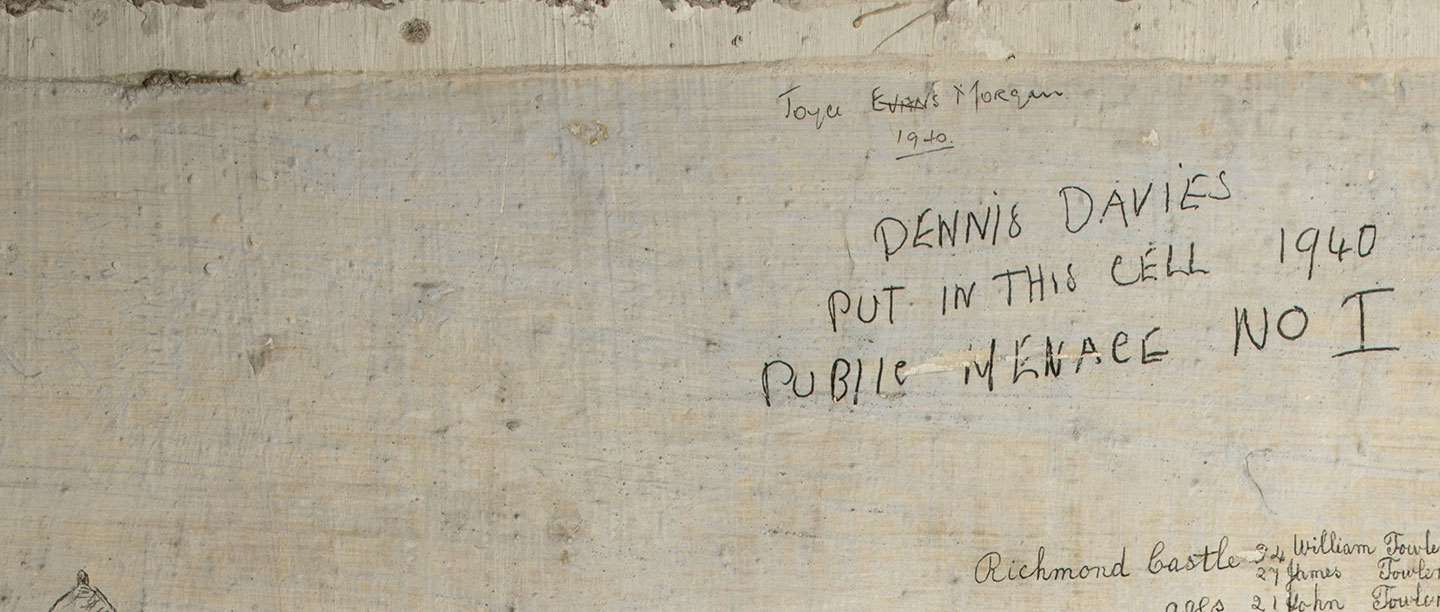 Joyce Evans Morgan
1940.
DENNIS DAVIES
PUT IN THIS CELL 1940
PUBlIC MENACE NO I
Richmond Castle 34 William Fowle
27 James Fowler
ages 21 John Fowler